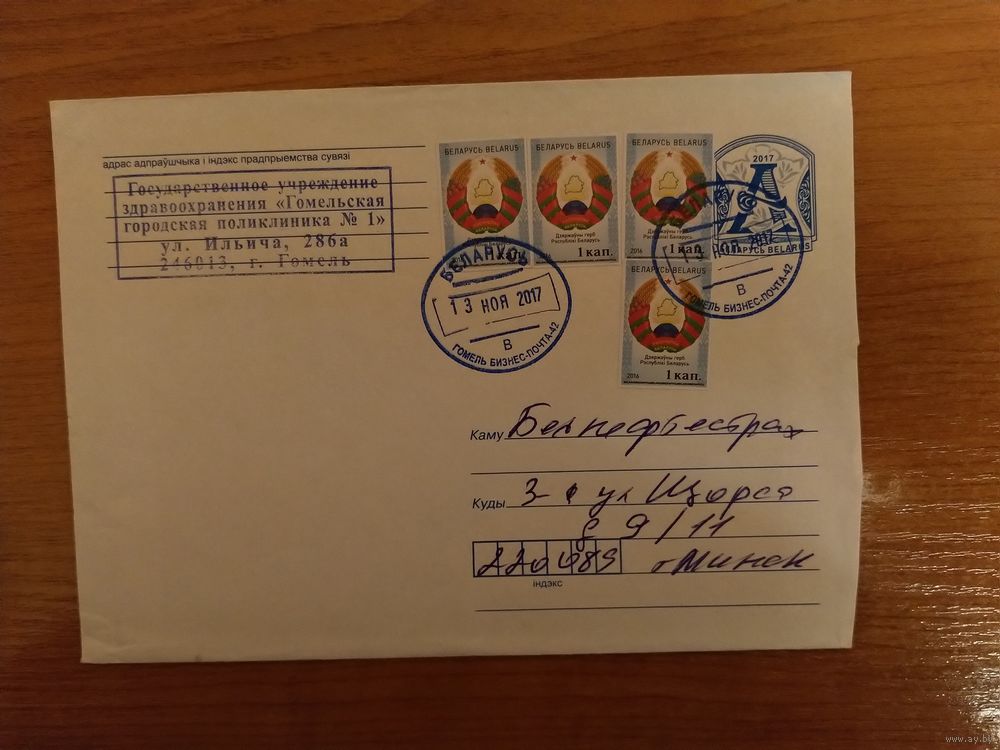 адрас адпраўшчыка і індэкс прадпрыемства сувязі
Государственное учреждение
здравоохранения «Гомельская
городская поликлиника № 1»
ул. Ильича, 286а
246013, г. Гомель
БЕЛАРУСЬ BELARUS
Дзяржаўны герб
Рэспублікі Беларусь
БЕЛАРУСЬ BELARUS
Дзяржаўны герб
Рэспублікі Беларусь
1 кап.
БЕЛАРУСЬ BELARUS
Дзяржаўны герб
Рэспублікі Беларусь
2016 1 кап.
БЕЛАРУСЬ BELARUS
Дзяржаўны герб
Рэспублікі Беларусь
2016 1 кап.
2017
А
БЕЛАРУСЬ BELARUS
БЕЛАРУСЬ
13 НОЯ 2017
В
ГОМЕЛЬ БИЗНЕС-ПОЧТА-42
БЕЛАРУСЬ
13 НОЯ 2017
В
ГОМЕЛЬ БИЗНЕС-ПОЧТА-42
Каму Белнефтестрах
Куды 3-я ул Щорса
д 9/11
220089 г Минск
індэкс
www.ay.by